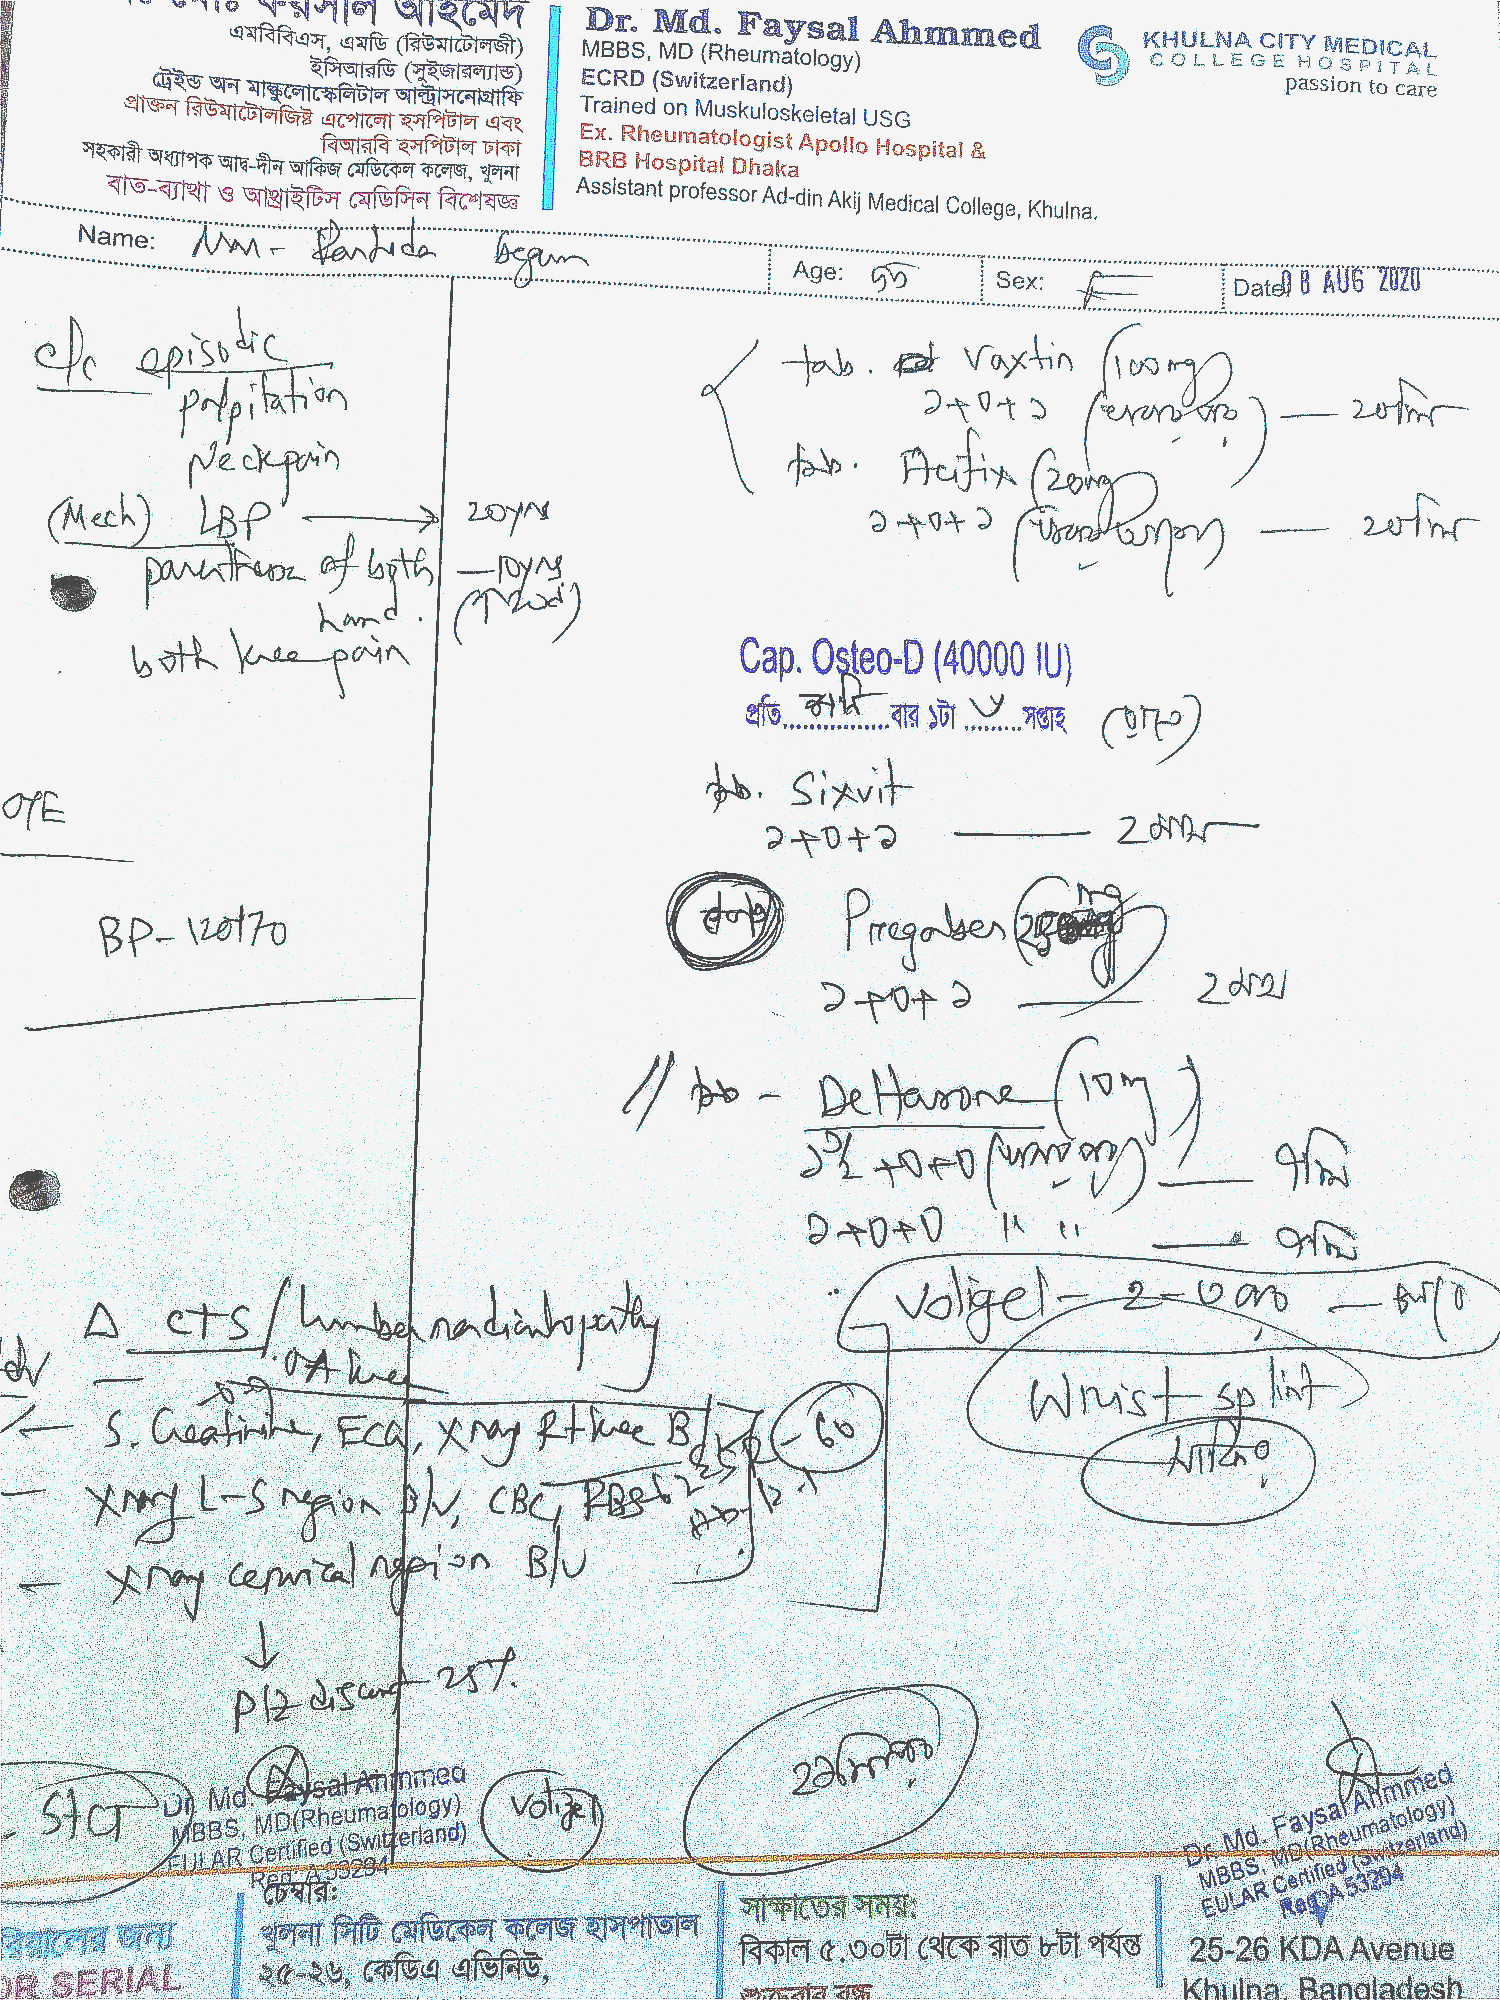 মোঃ ফয়সাল আহমেদ
এমবিবিএস, এমডি (রিউমাটোলজী)
ইসিআরডি (সুইজারল্যান্ড)
ট্রেইন্ড অন মাস্কুলোস্কেলিটাল আল্ট্রাসনোগ্রাফি
প্রাক্তন রিউমাটোলজিষ্ট এপোলো হসপিটাল এবং
বিআরবি হসপিটাল ঢাকা
সহকারী অধ্যাপক আদ-দীন আকিজ মেডিকেল কলেজ, খুলনা
বাত-ব্যাথা ও আর্থ্রাইটিস মেডিসিন বিশেষজ্ঞ
Dr. Md. Faysal Ahmmed
MBBS, MD (Rheumatology)
ECRD (Switzerland)
Trained on Muskuloskeletal USG
Ex. Rheumatologist Apollo Hospital &
BRB Hospital Dhaka
Assistant professor Ad-din Akij Medical College, Khulna.
KHULNA CITY MEDICAL
COLLEGE HOSPITAL
passion to care
Name: Begum
Age: ৫৫ Sex: F Date: 08 AUG 2020
c/c episodic
palpitation
Neck pain
(Mech) LBP → 20yrs
of both — 10yrs
hand.
both knee pain
O/E
BP - 120/70
Δ CTS / lumber radiculopathy
OA knee
Adv
S. Creatinine, ECG, Xray Rt knee B/V
Xray L-S region B/V, CBC, RBS
Xray cervical region B/V
↓
Plz discount 25%
60
tab. Vaxtin (100mg)
১+০+১ — ২০দিন
tab. Acifix (20mg)
১+০+১ — ২০দিন
Cap. Osteo-D (40000 IU)
প্রতি বার ১টা সপ্তাহ
tab. Sixvit
১+০+১ — ২মাস
Pregaben
১+০+১ — ২মাস
// tab - Deltasone (10mg)
১½+০+০
১+০+০ " "
Voligel - 2-0
Wrist splint
Voligel
Dr. Md. Faysal Ahmmed
MBBS, MD(Rheumatology)
EULAR Certified (Switzerland)
Reg. A 53294
Dr. Md. Faysal Ahmmed
MBBS, MD(Rheumatology)
EULAR Certified (Switzerland)
Reg. A 53294
সিরিয়ালের জন্য
OR SERIAL
চেম্বার:
খুলনা সিটি মেডিকেল কলেজ হাসপাতাল
২৫-২৬, কেডিএ এভিনিউ,
সাক্ষাতের সময়:
বিকাল ৫.৩০টা থেকে রাত ৮টা পর্যন্ত
শুক্রবার বন্ধ
25-26 KDA Avenue
Khulna, Bangladesh